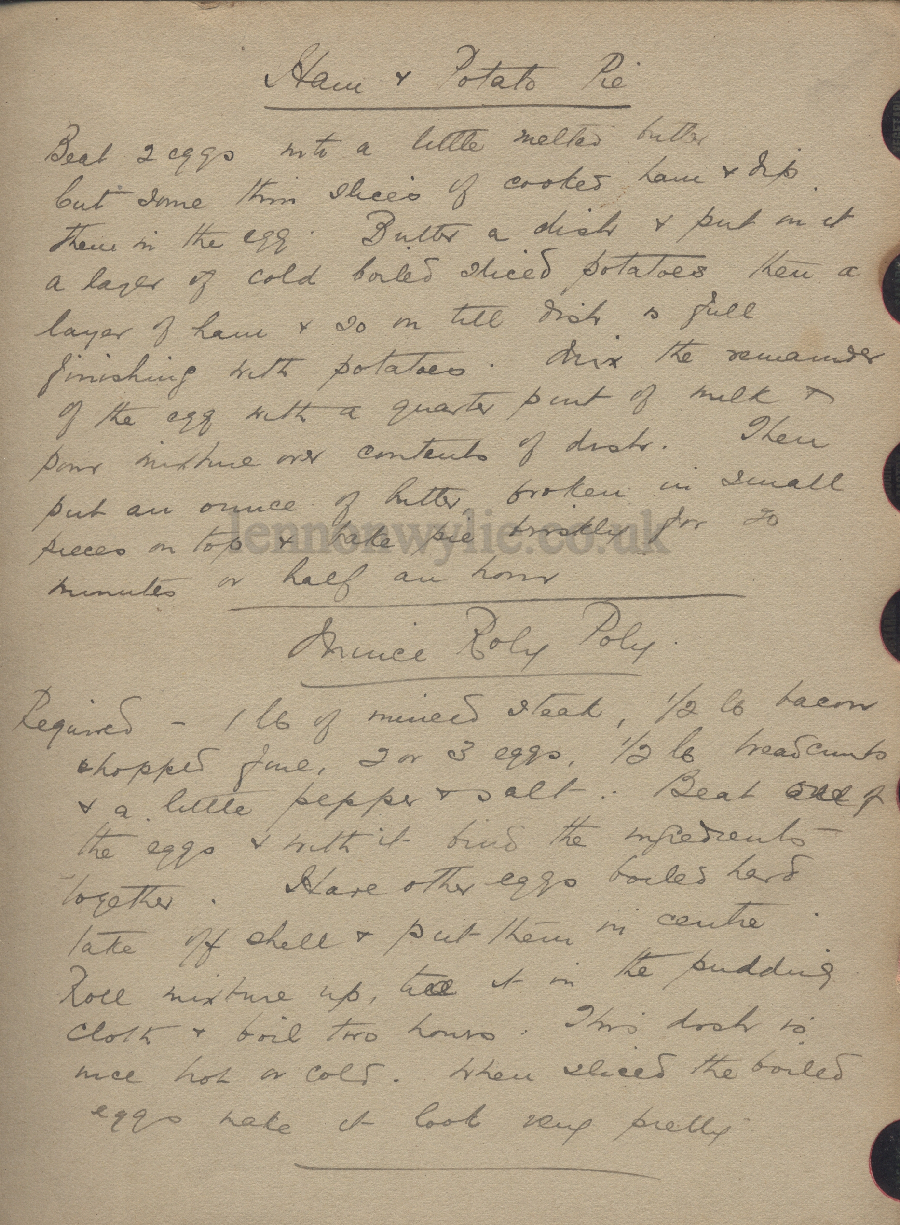 Ham & Potato Pie
Beat 2 eggs into a little melted butter
Cut some thin slices of cooked ham & dip
them in the egg. Butter a dish & put in it
a layer of cold boiled sliced potatoes then a
layer of ham & so on till dish is full
finishing with potatoes. Mix the remainder
of the egg with a quarter pint of milk &
pour mixture over contents of dish. Then
put an ounce of butter broken in small
pieces on top & bake pie briskly for 20
minutes or half an hour
lennonwylie.co.uk
Mince Roly Poly.
Required - 1 lb of minced steak, 1/2 lb bacon
chopped fine, 2 or 3 eggs, 1/2 lb breadcrumbs
& a little pepper & salt. Beat one of
the eggs & with it bind the ingredients
together. Have other eggs boiled hard
take off shell & put them in centre.
Roll mixture up, it in the pudding
cloth & boil two hours. This dish is
nice hot or cold. When sliced the boiled
eggs make it look very pretty